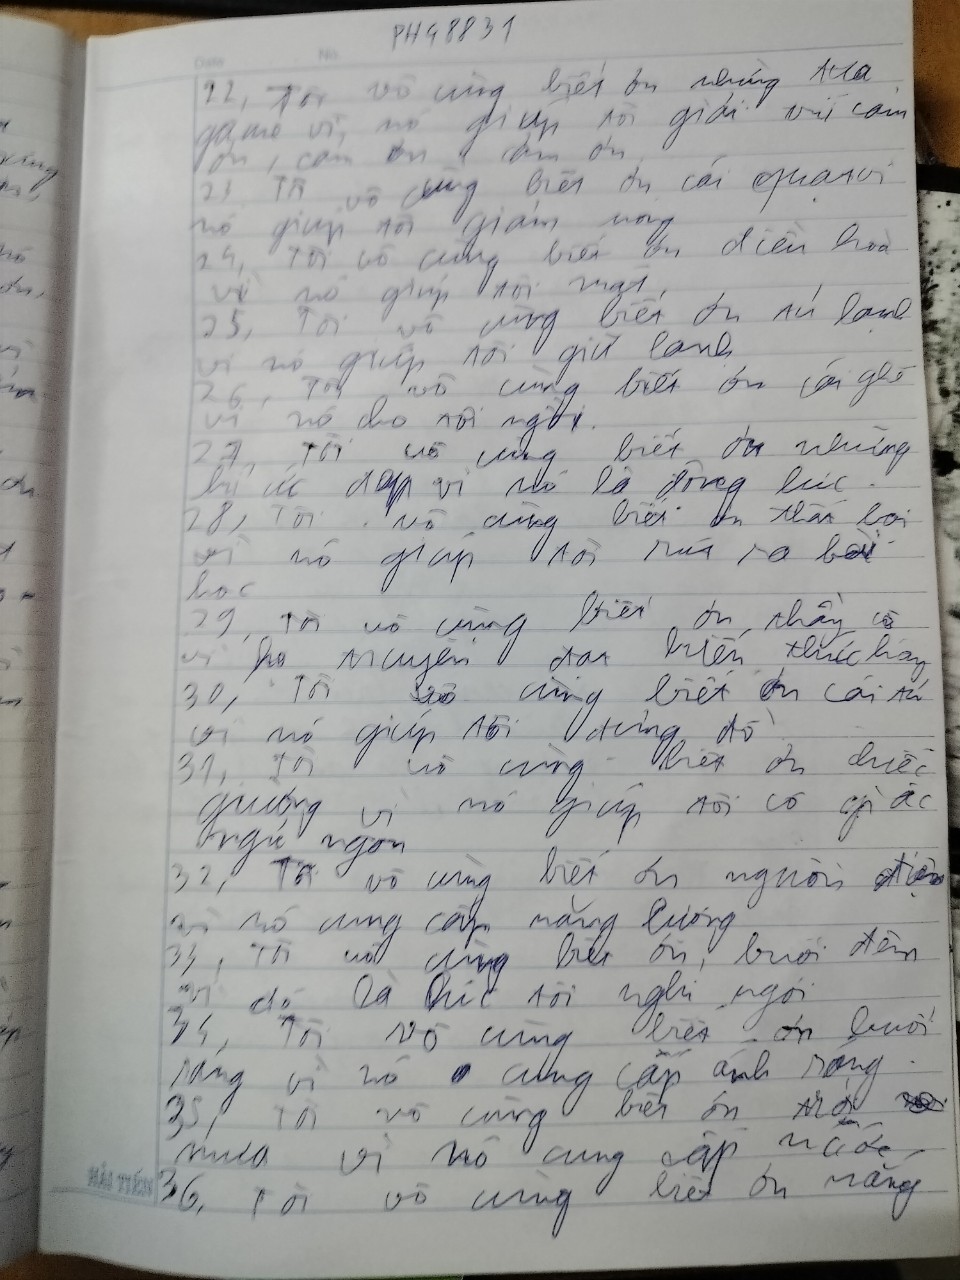 PHG8831
Date No.
22, Tôi vô cùng biết ơn những tựa
game vì nó giúp tôi giải trí cảm
ơn, cảm ơn, cảm ơn,
23 Tôi vô cùng biết ơn cái quạt vì
nó giúp tôi giảm nóng
24, Tôi vô cùng biết ơn điều hoà
vì nó giúp tôi mát,
25, Tôi vô cùng biết ơn tủ lạnh
vì nó giúp tôi giữ lạnh
26, Tôi vô cùng biết ơn cái ghế
vì nó cho tôi ngồi.
27, Tôi vô cùng biết ơn những
ký ức đẹp vì nó là động lực.
28, Tôi vô cùng biết ơn thất bại
vì nó giúp tôi rút ra bài
học
29, Tôi vô cùng biết ơn thầy cô
vì họ truyền đạt kiến thức hay
30, Tôi vô cùng biết ơn cái tủ
vì nó giúp tôi đựng đồ
31, Tôi vô cùng biết ơn chiếc
giường vì nó giúp tôi có giấc
ngủ ngon
32, Tôi vô cùng biết ơn nguồn điện
vì nó cung cấp năng lượng
33, Tôi vô cùng biết ơn, buổi đêm
vì đó là lúc tôi nghỉ ngơi
34, Tôi vô cùng biết ơn buổi
sáng vì nó cung cấp ánh sáng.
35, Tôi vô cùng biết ơn trời
mưa vì nó cung cấp nước,
36, Tôi vô cùng biết ơn nắng